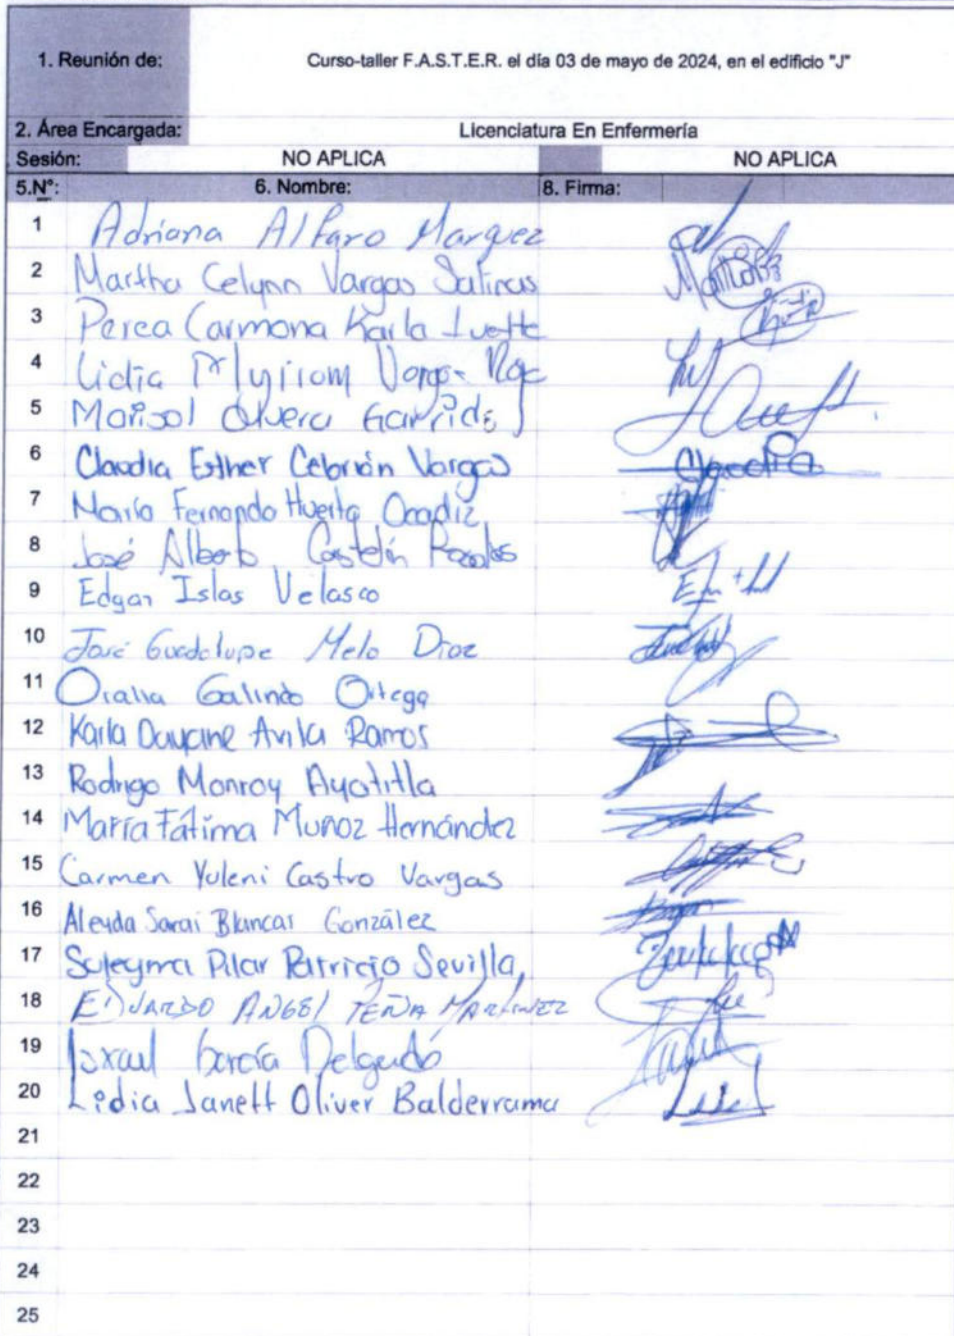 1. Reunión de: Curso-taller F.A.S.T.E.R. el día 03 de mayo de 2024, en el edificio "J"
2. Área Encargada: Licenciatura En Enfermería
Sesión: NO APLICA NO APLICA
5.N°: 6. Nombre: 8. Firma:
1 Adriana Alfaro Marquez
2 Martha Celynn Vargas Salinas
3 Perea Carmona Karla Ivette
4 Lidia Myriam Vargas
5 Marisol Olvera Garrido
6 Claudia Esther Cebrián Vargas Claudia
7 María Fernanda Huerta Ocadiz
8 José Alberto Castelán Rosales
9 Edgar Islas Velasco
10 José Guadalupe Melo Diaz
11 Oralia Galindo Ortega
12 Karla Avila Ramos
13 Rodrigo Monroy Ayotitla
14 María Fátima Muñoz Hernández
15 Carmen Yuleni Castro Vargas
16 Aleyda Sarai Blancas González
17 Suleyma Pilar Patricio Sevilla
18 EDUARDO ANGEL PEÑA MARTINEZ
19 Israel García Delgado
20 Lidia Janett Oliver Balderrama
21
22
23
24
25